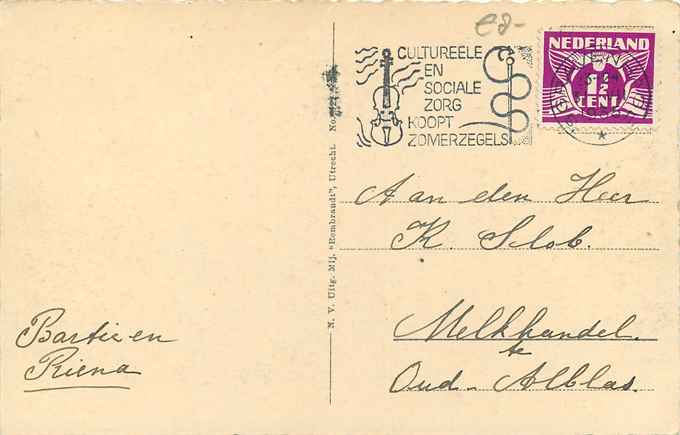 €8-
CULTUREELE
EN
SOCIALE
ZORG
KOOPT
ZOMERZEGELS
NEDERLAND
1½
CENT
N. V. Uitg. Mij. "Rembrandt", Utrecht. No.
Aan den Heer
K. Slob.
Melkhandel.
te
Oud-Alblas.
Bartie en
Riena